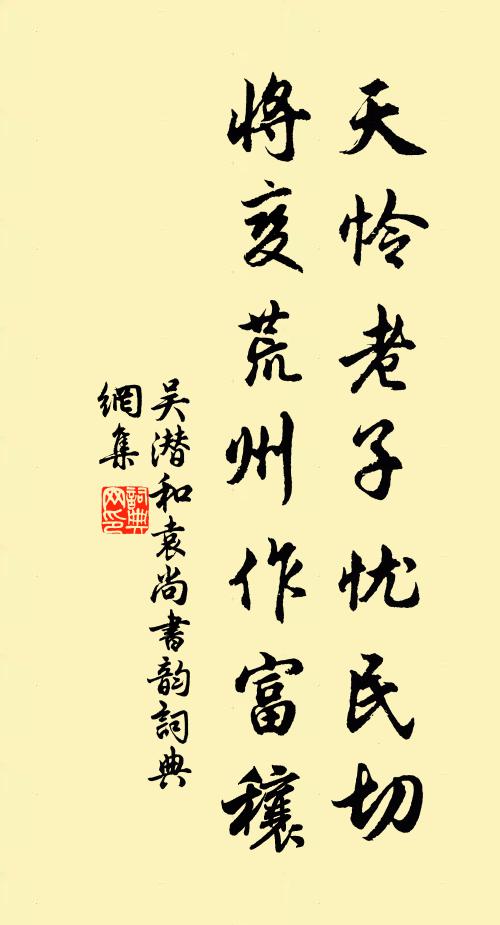 天怜老子忧民切
将变荒州作富穰
吴潜和袁尚书韵詞典
網集
詞典
网印